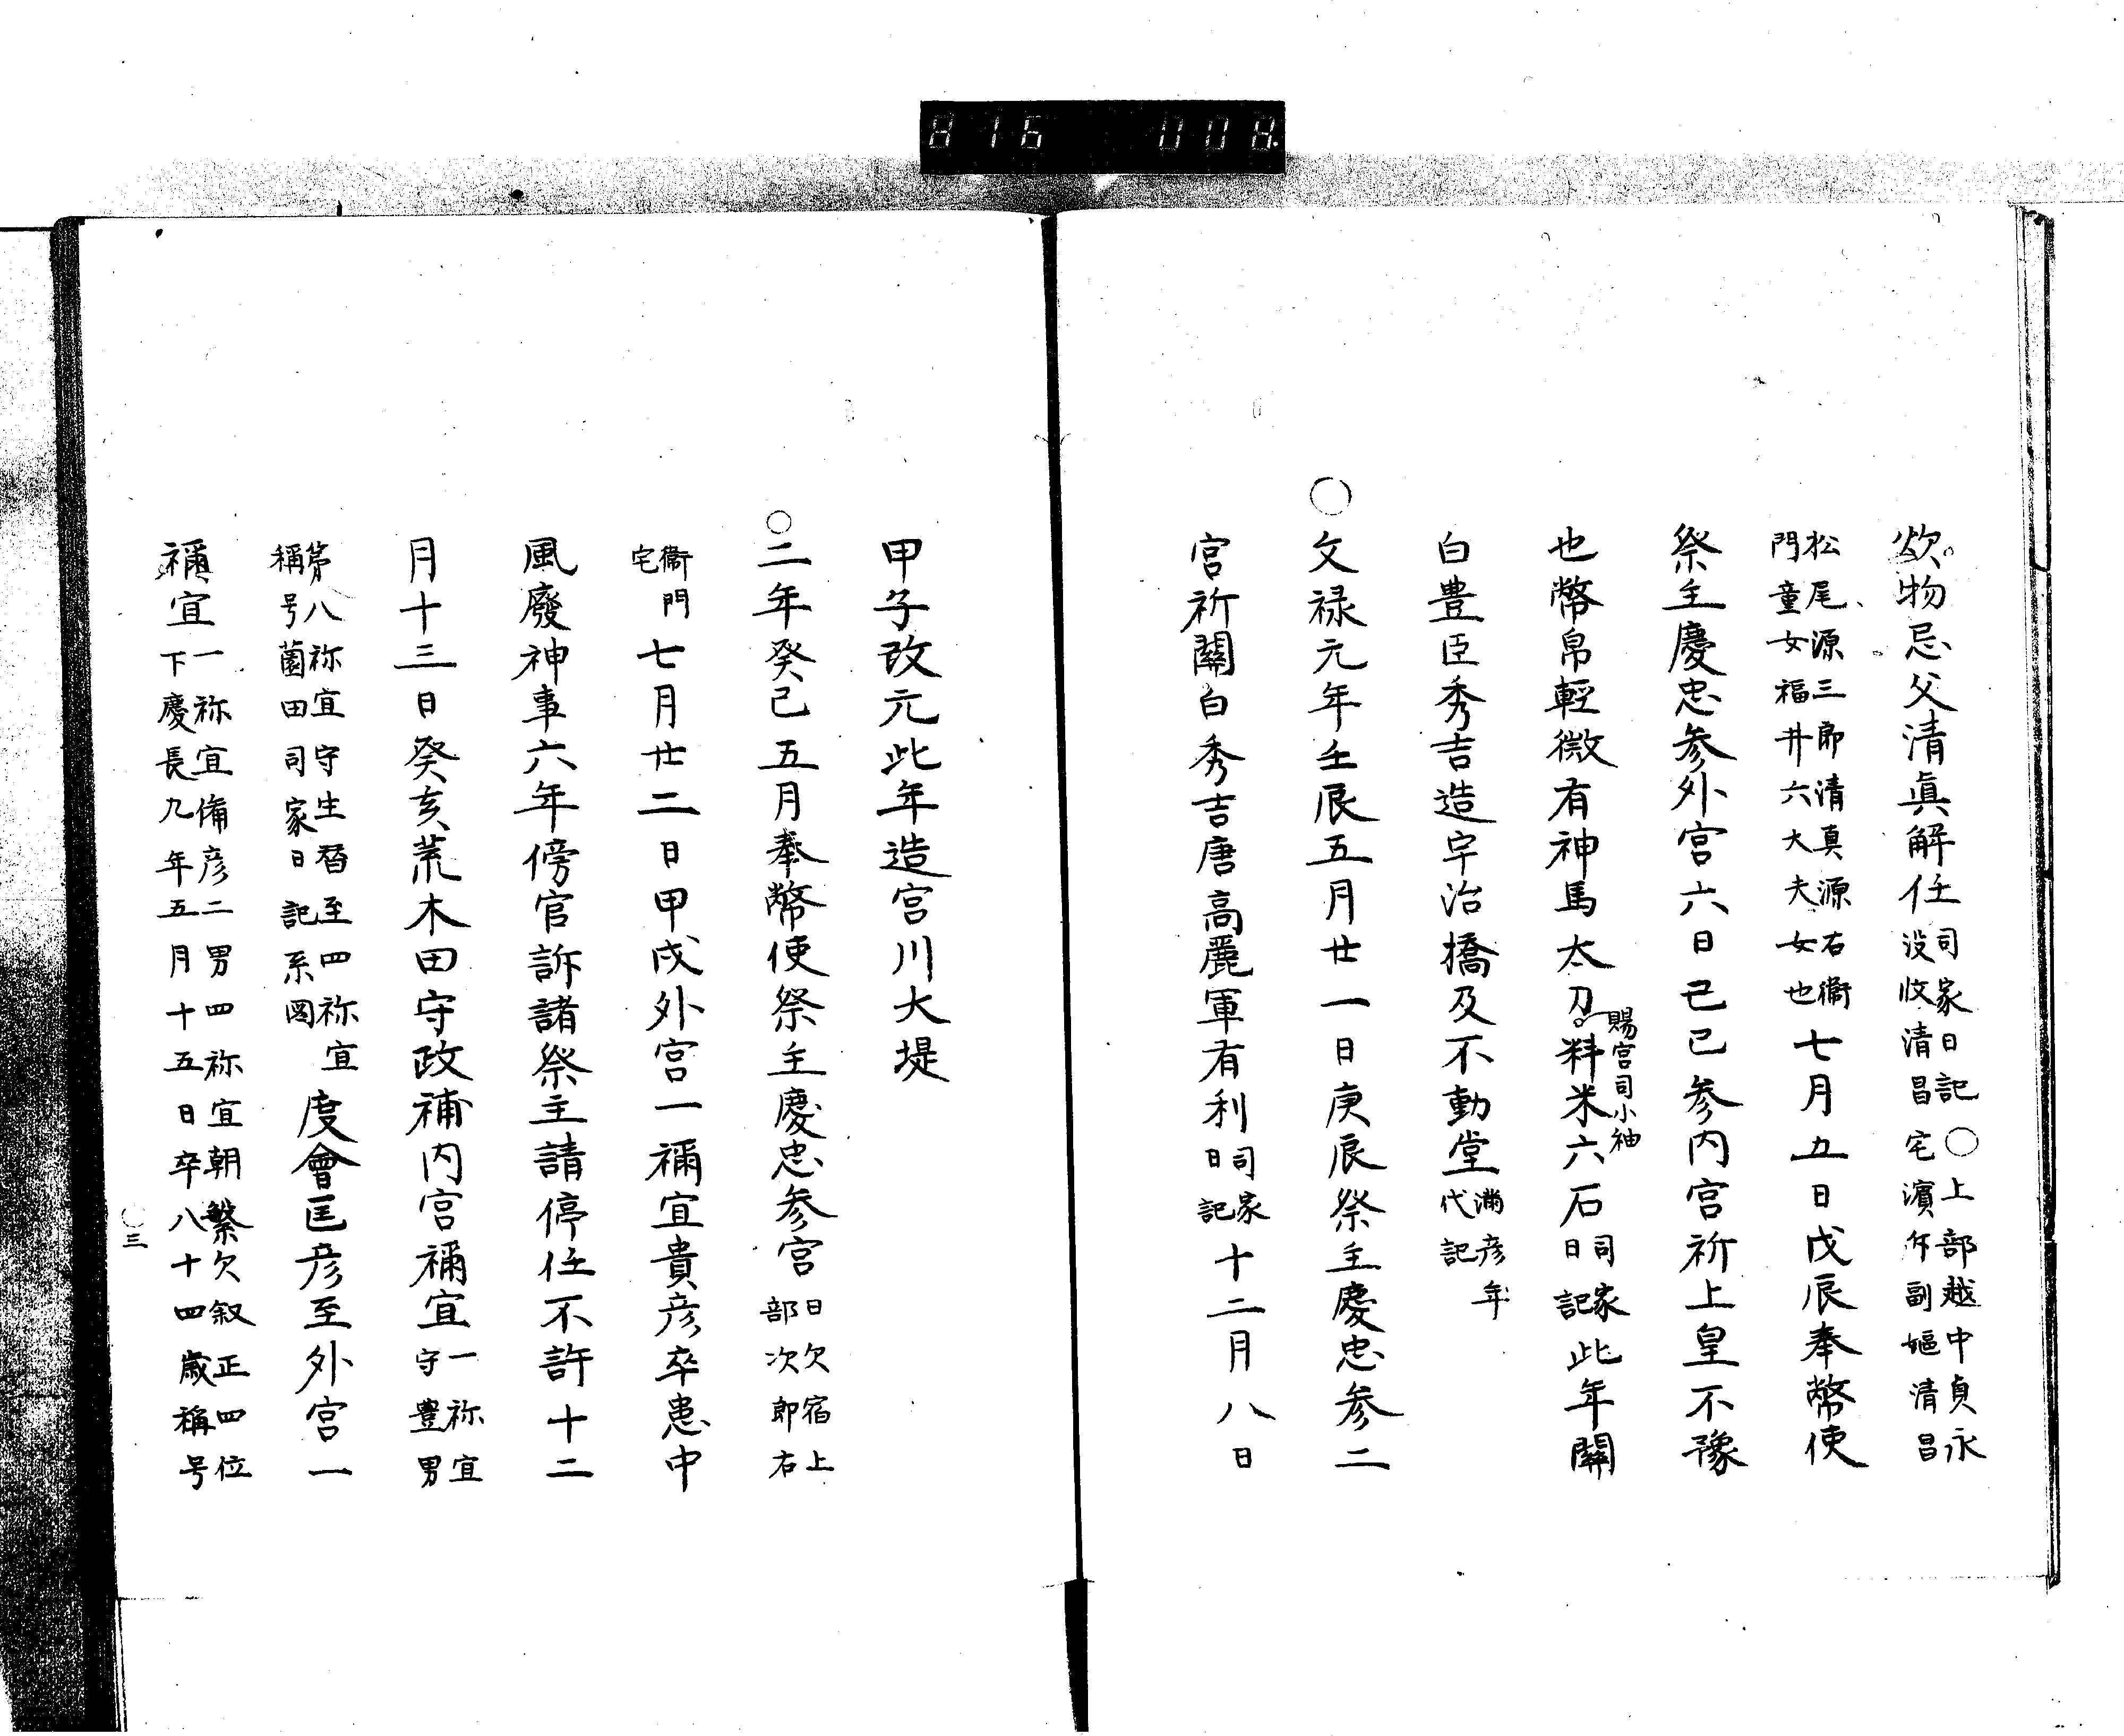 816 008
欲物忌父清眞解任司家日記○上部越中貞永
没收清昌宅濱年副嫗清昌
松尾源三郎清真源右衞
門童女福井六大夫女也七月五日戊辰奉幣使
祭主慶忠参外宮六日己巳参内宮祈上皇不豫
也幣帛輕微有神馬太刀料米六石司家日記此年關
賜宮司小袖
白豊臣秀吉造宇治橋及不動堂満彦年代記
○文禄元年壬辰五月廿一日庚辰祭主慶忠参二
宮祈關白秀吉唐高麗軍有利司家日記十二月八日
甲子改元此年造宮川大堤
○二年癸巳五月奉幣使祭主慶忠参宮日欠宿上部次郎右
衞門宅七月廿二日甲戌外宮一禰宜貴彦卒患中
風廢神事六年傍官訴諸祭主請停任不許十二
月十三日癸亥荒木田守政補内宮禰宜一祢宜守豊男
第八祢宜守生替至四祢宜
稱号薗田司家日記系図度會匡彦至外宮一
禰宜一祢宜備彦二男四祢宜朝繁欠叙正四位
下慶長九年五月十五日卒八十四歳稱号
○三